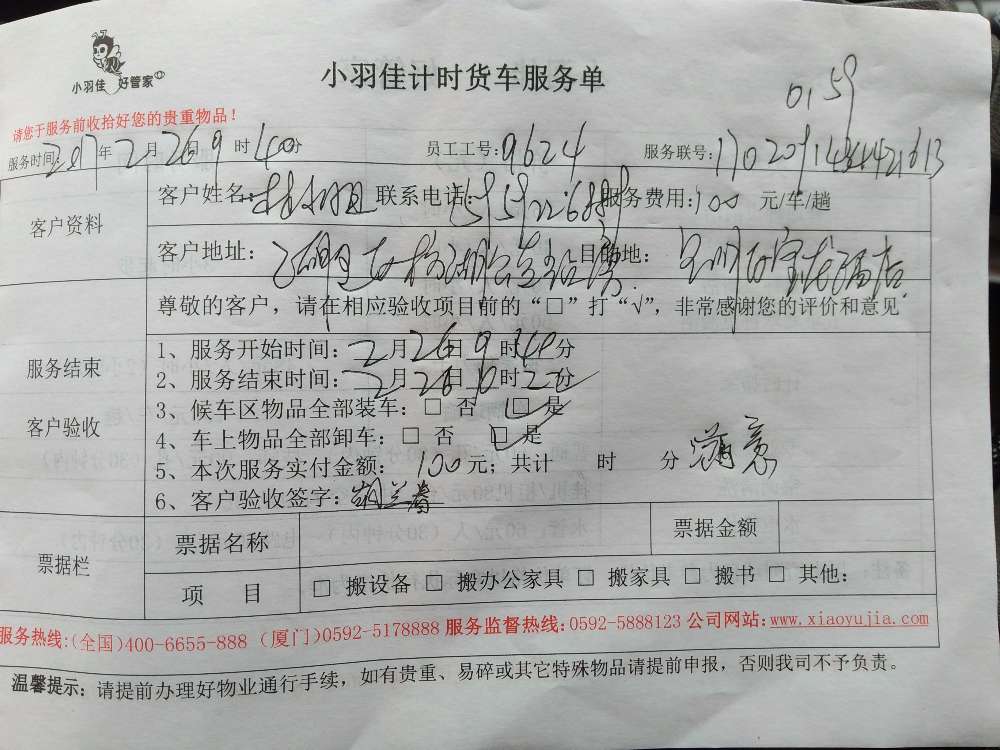 小羽佳 好管家
小羽佳计时货车服务单
0159
请您于服务前收拾好您的贵重物品!
服务时间: 2017年2月26日9时40分 员工工号: 9624 服务联号:
客户资料
客户姓名: 联系电话: 服务费用: 100 元/车/趟
客户地址: 目的地:
尊敬的客户,请在相应验收项目前的“□”打“√”,非常感谢您的评价和意见
服务结束
客户验收
1、服务开始时间: 2月26日9时40分
2、服务结束时间: 2月26日10时2分
3、候车区物品全部装车: □ 否 □ 是
4、车上物品全部卸车: □ 否 □ 是
5、本次服务实付金额: 100元; 共计 时 分
6、客户验收签字:
票据栏
票据名称 票据金额
项 目 □ 搬设备 □ 搬办公家具 □ 搬家具 □ 搬书 □ 其他:
服务热线:(全国)400-6655-888 (厦门)0592-5178888 服务监督热线:0592-5888123 公司网站:www.xiaoyujia.com
温馨提示: 请提前办理好物业通行手续,如有贵重、易碎或其它特殊物品请提前申报,否则我司不予负责。